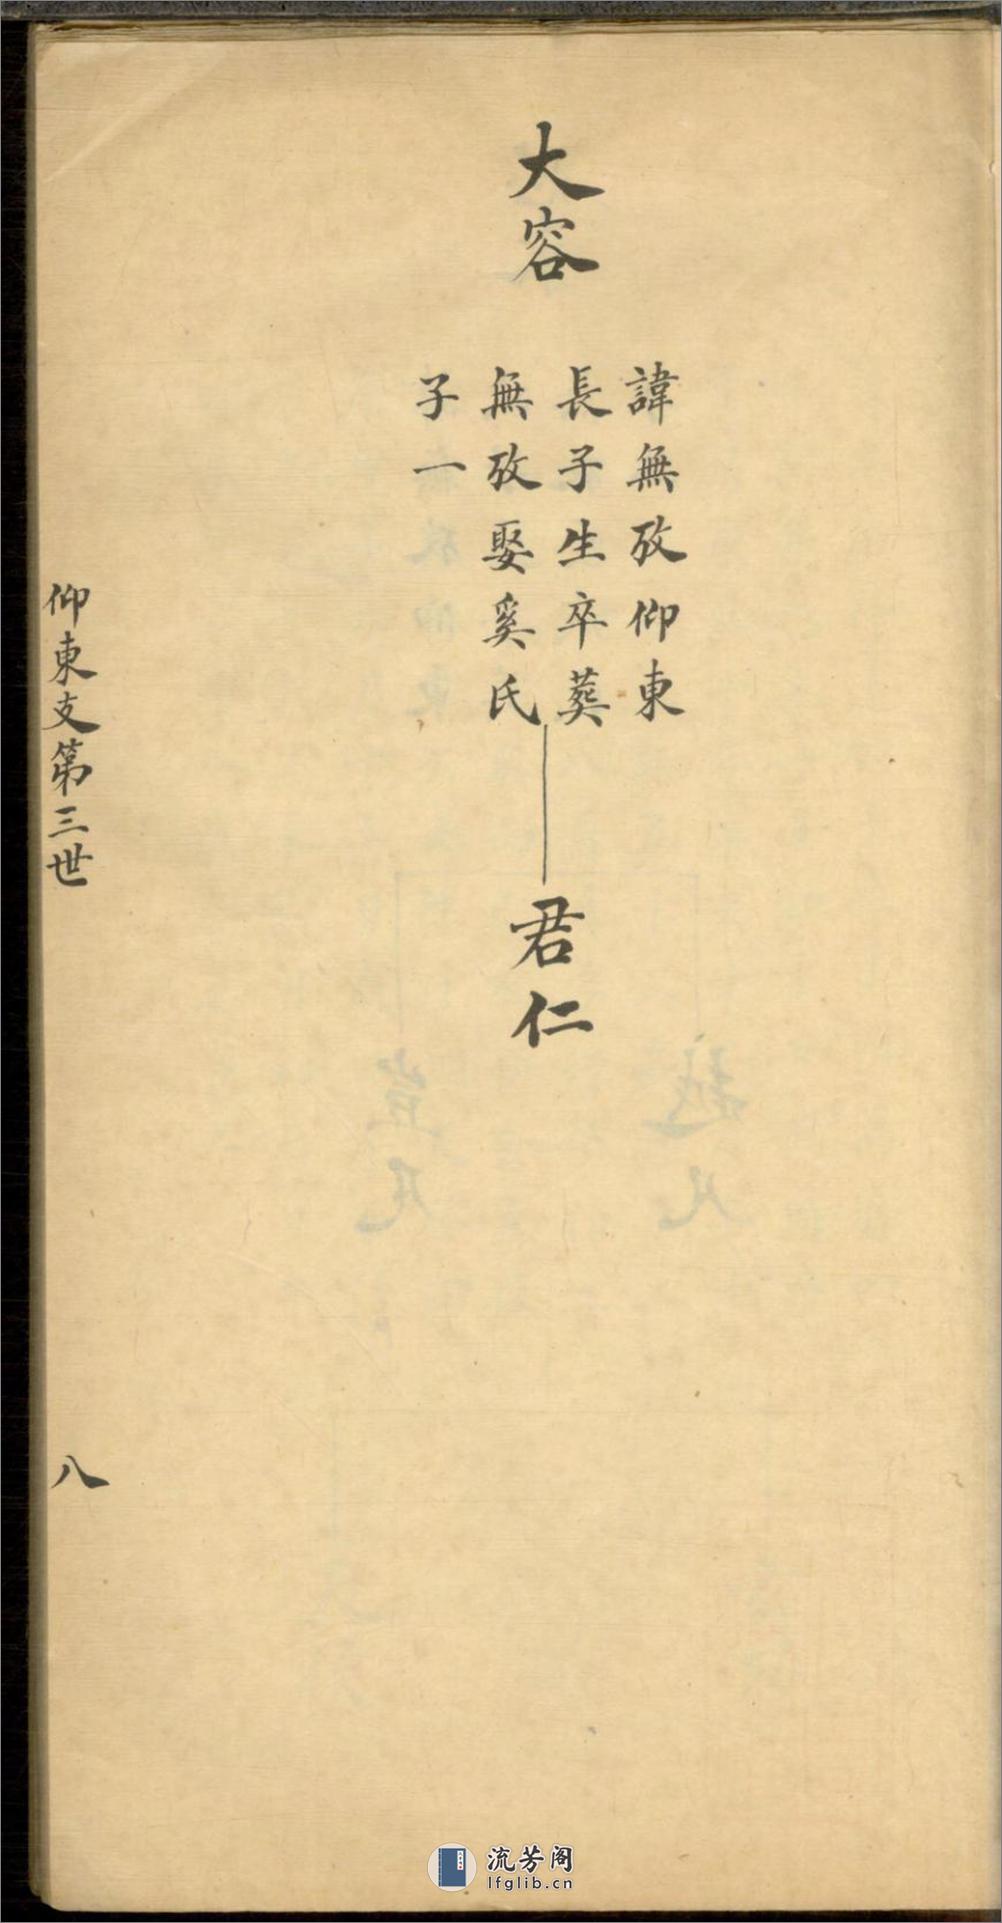 大容
諱無攷仰東
長子生卒葬
無攷娶奚氏
子一
君仁
仰東支第三世
八
流芳阁
lfglib.cn